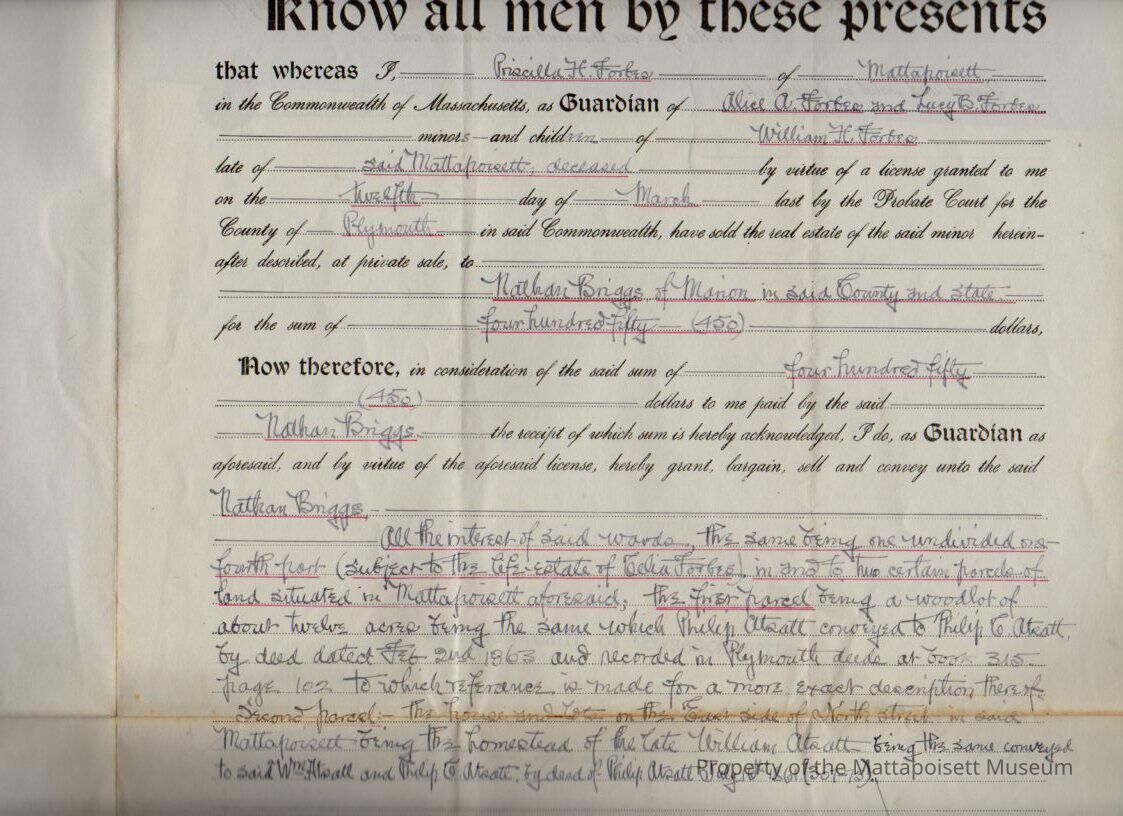 Know all men by these presents
that whereas I, Priscilla H. Forbes of Mattapoisett,
in the Commonwealth of Massachusetts, as Guardian of Alice A. Forbes and Lucy B. Forbes
minors and children of William H. Forbes
late of said Mattapoisett, deceased by virtue of a license granted to me
on the twelfth day of March last by the Probate Court for the
County of Plymouth in said Commonwealth, have sold the real estate of the said minor herein-
after described, at private sale, to
Nathan Briggs, of Marion in said County and State.
for the sum of four hundred fifty (450) dollars,
Now therefore, in consideration of the said sum of four hundred fifty
(450) dollars to me paid by the said
Nathan Briggs the receipt of which sum is hereby acknowledged, I do, as Guardian as
aforesaid, and by virtue of the aforesaid license, hereby grant, bargain, sell and convey unto the said
Nathan Briggs,
All the interest of said wards, the same being one undivided one-
fourth part (subject to the life-estate of Celia Forbes) in and to two certain parcels of
land situated in Mattapoisett aforesaid; the first parcel being a woodlot of
about twelve acres being the same which Philip Atsatt conveyed to Philip C Atsatt,
by deed dated Feb. 2nd 1863 and recorded in Plymouth deeds at book 315
page 102 to which referance is made for a more exact description thereof.
Second parcel:- The house and lots on the East side of North street in said
Mattapoisett being the homestead of the late William Atsatt being the same conveyed
to said Wm Atsatt and Philip C Atsatt, by deed of Philip Atsatt
Property of the Mattapoisett Museum